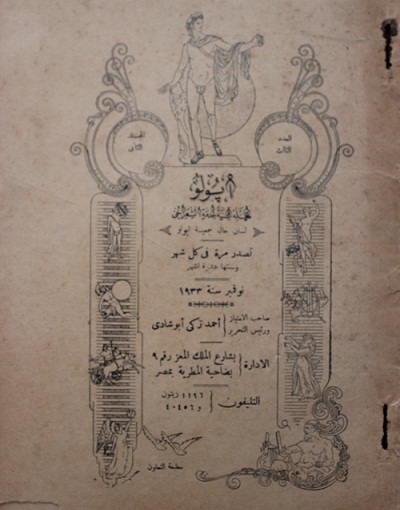 المجلد
الثانى
العدد
الثالث
أپولو
لسان حال جمعية أپولو
تصدر مرة فى كل شهر
وسنتها عشرة أشهر
نوفمبر سنة ١٩٣٣
صاحب الامتياز
ورئيس التحرير
أحمد زكى أبوشادى
الادارة
بشارع الملك المعز رقم ٩
بضاحية المطرية بمصر
التليفون
١١٢٦ زيتون
و ٤٠٤٥٦
مطبعة التعاون